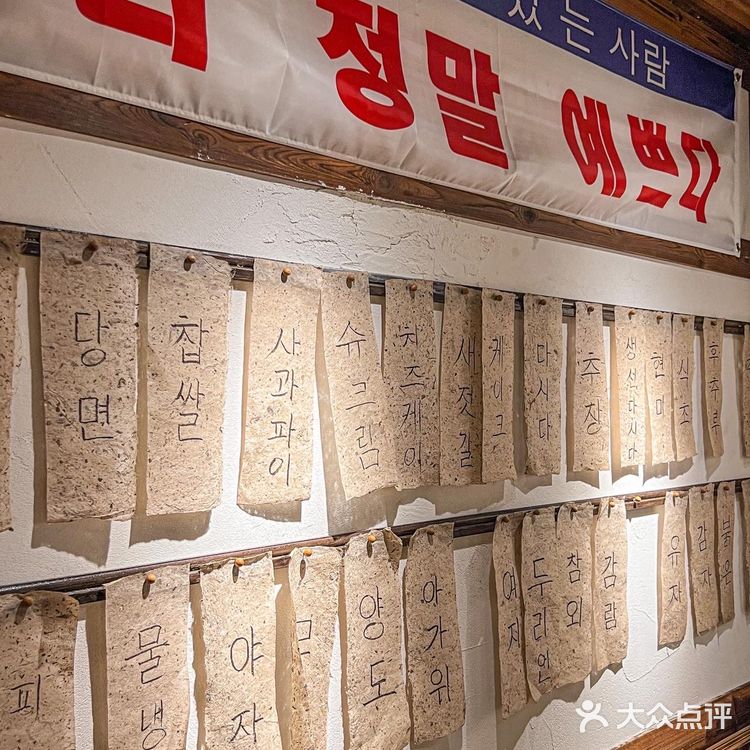 있는 사람
정말 예쁘다
당면
찹쌀
사과파이
슈크림
치즈케이
새젓갈
케이크
다시다
추장
생선다시다
현미
식초
후추루
피
물냉
야자
양도
아가위
여지
두리안
참외
감람
유자
감자
붉은
大众点评